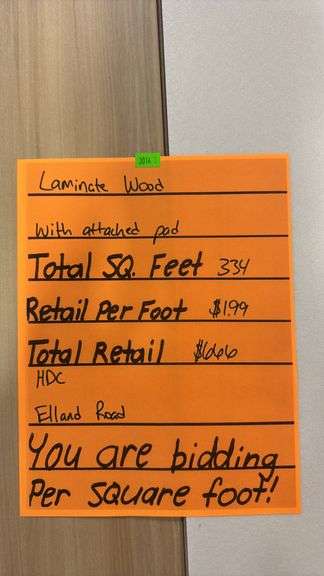 Laminate Wood
With attached pad
Total SQ. Feet 334
Retail Per Foot $1.99
Total Retail $666
HDC
Elland Road
You are bidding
Per square foot!